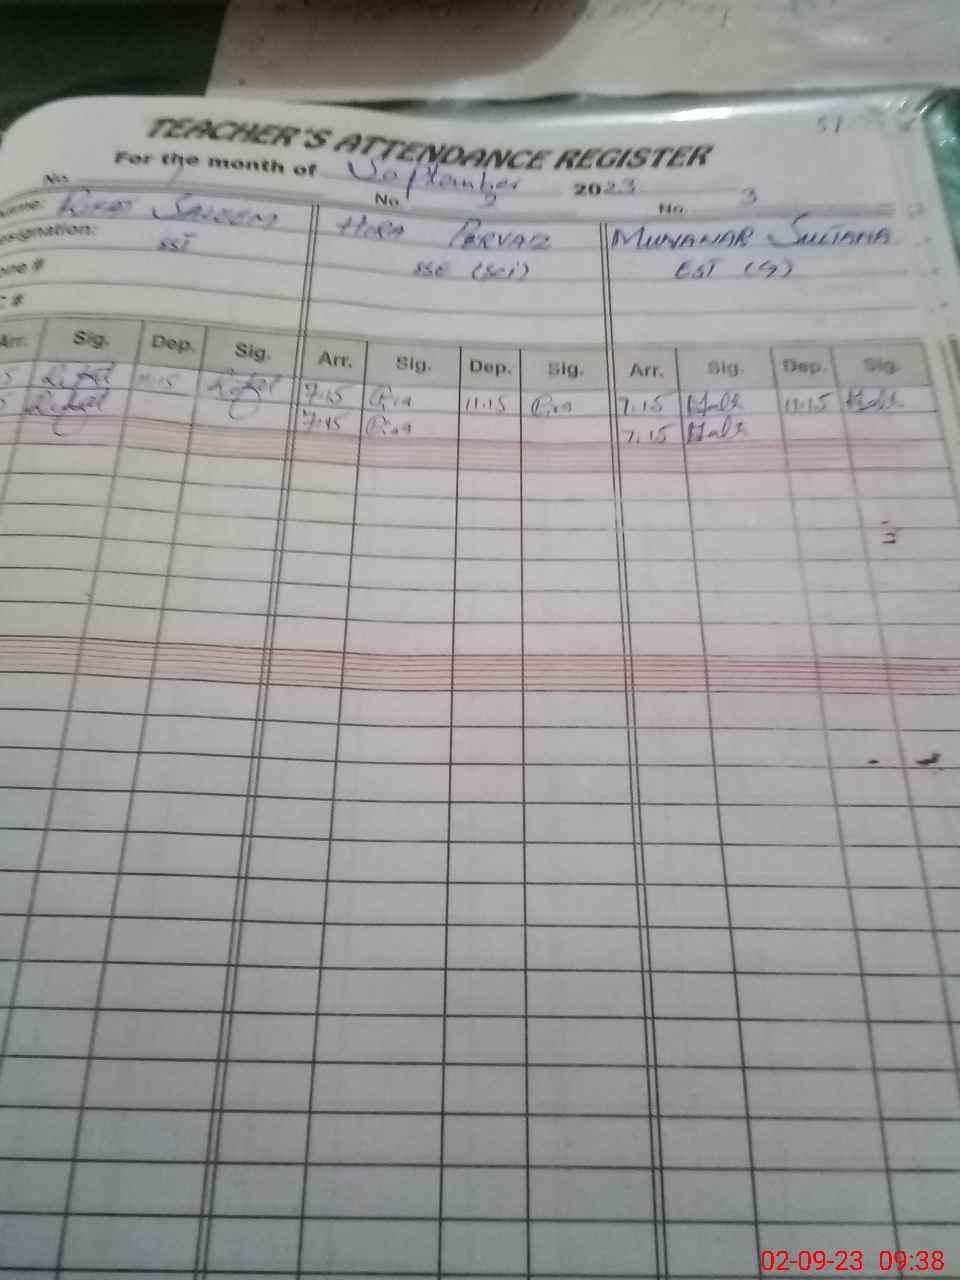 51
TEACHER'S ATTENDANCE REGISTER
For the month of September 2023
No. 1 No. 2 No. 3
SALEEM HIRA PERVAIZ MUNAWAR SULTANA
esignation: SST SSE (Sci) EST (G)
one #
C #
Arr. Sig. Dep. Sig. Arr. Sig. Dep. Sig. Arr. Sig. Dep. Sig.
5 11:15 7:15 11:15 7:15 11:15
5 7:15 7:15
02-09-23 09:38